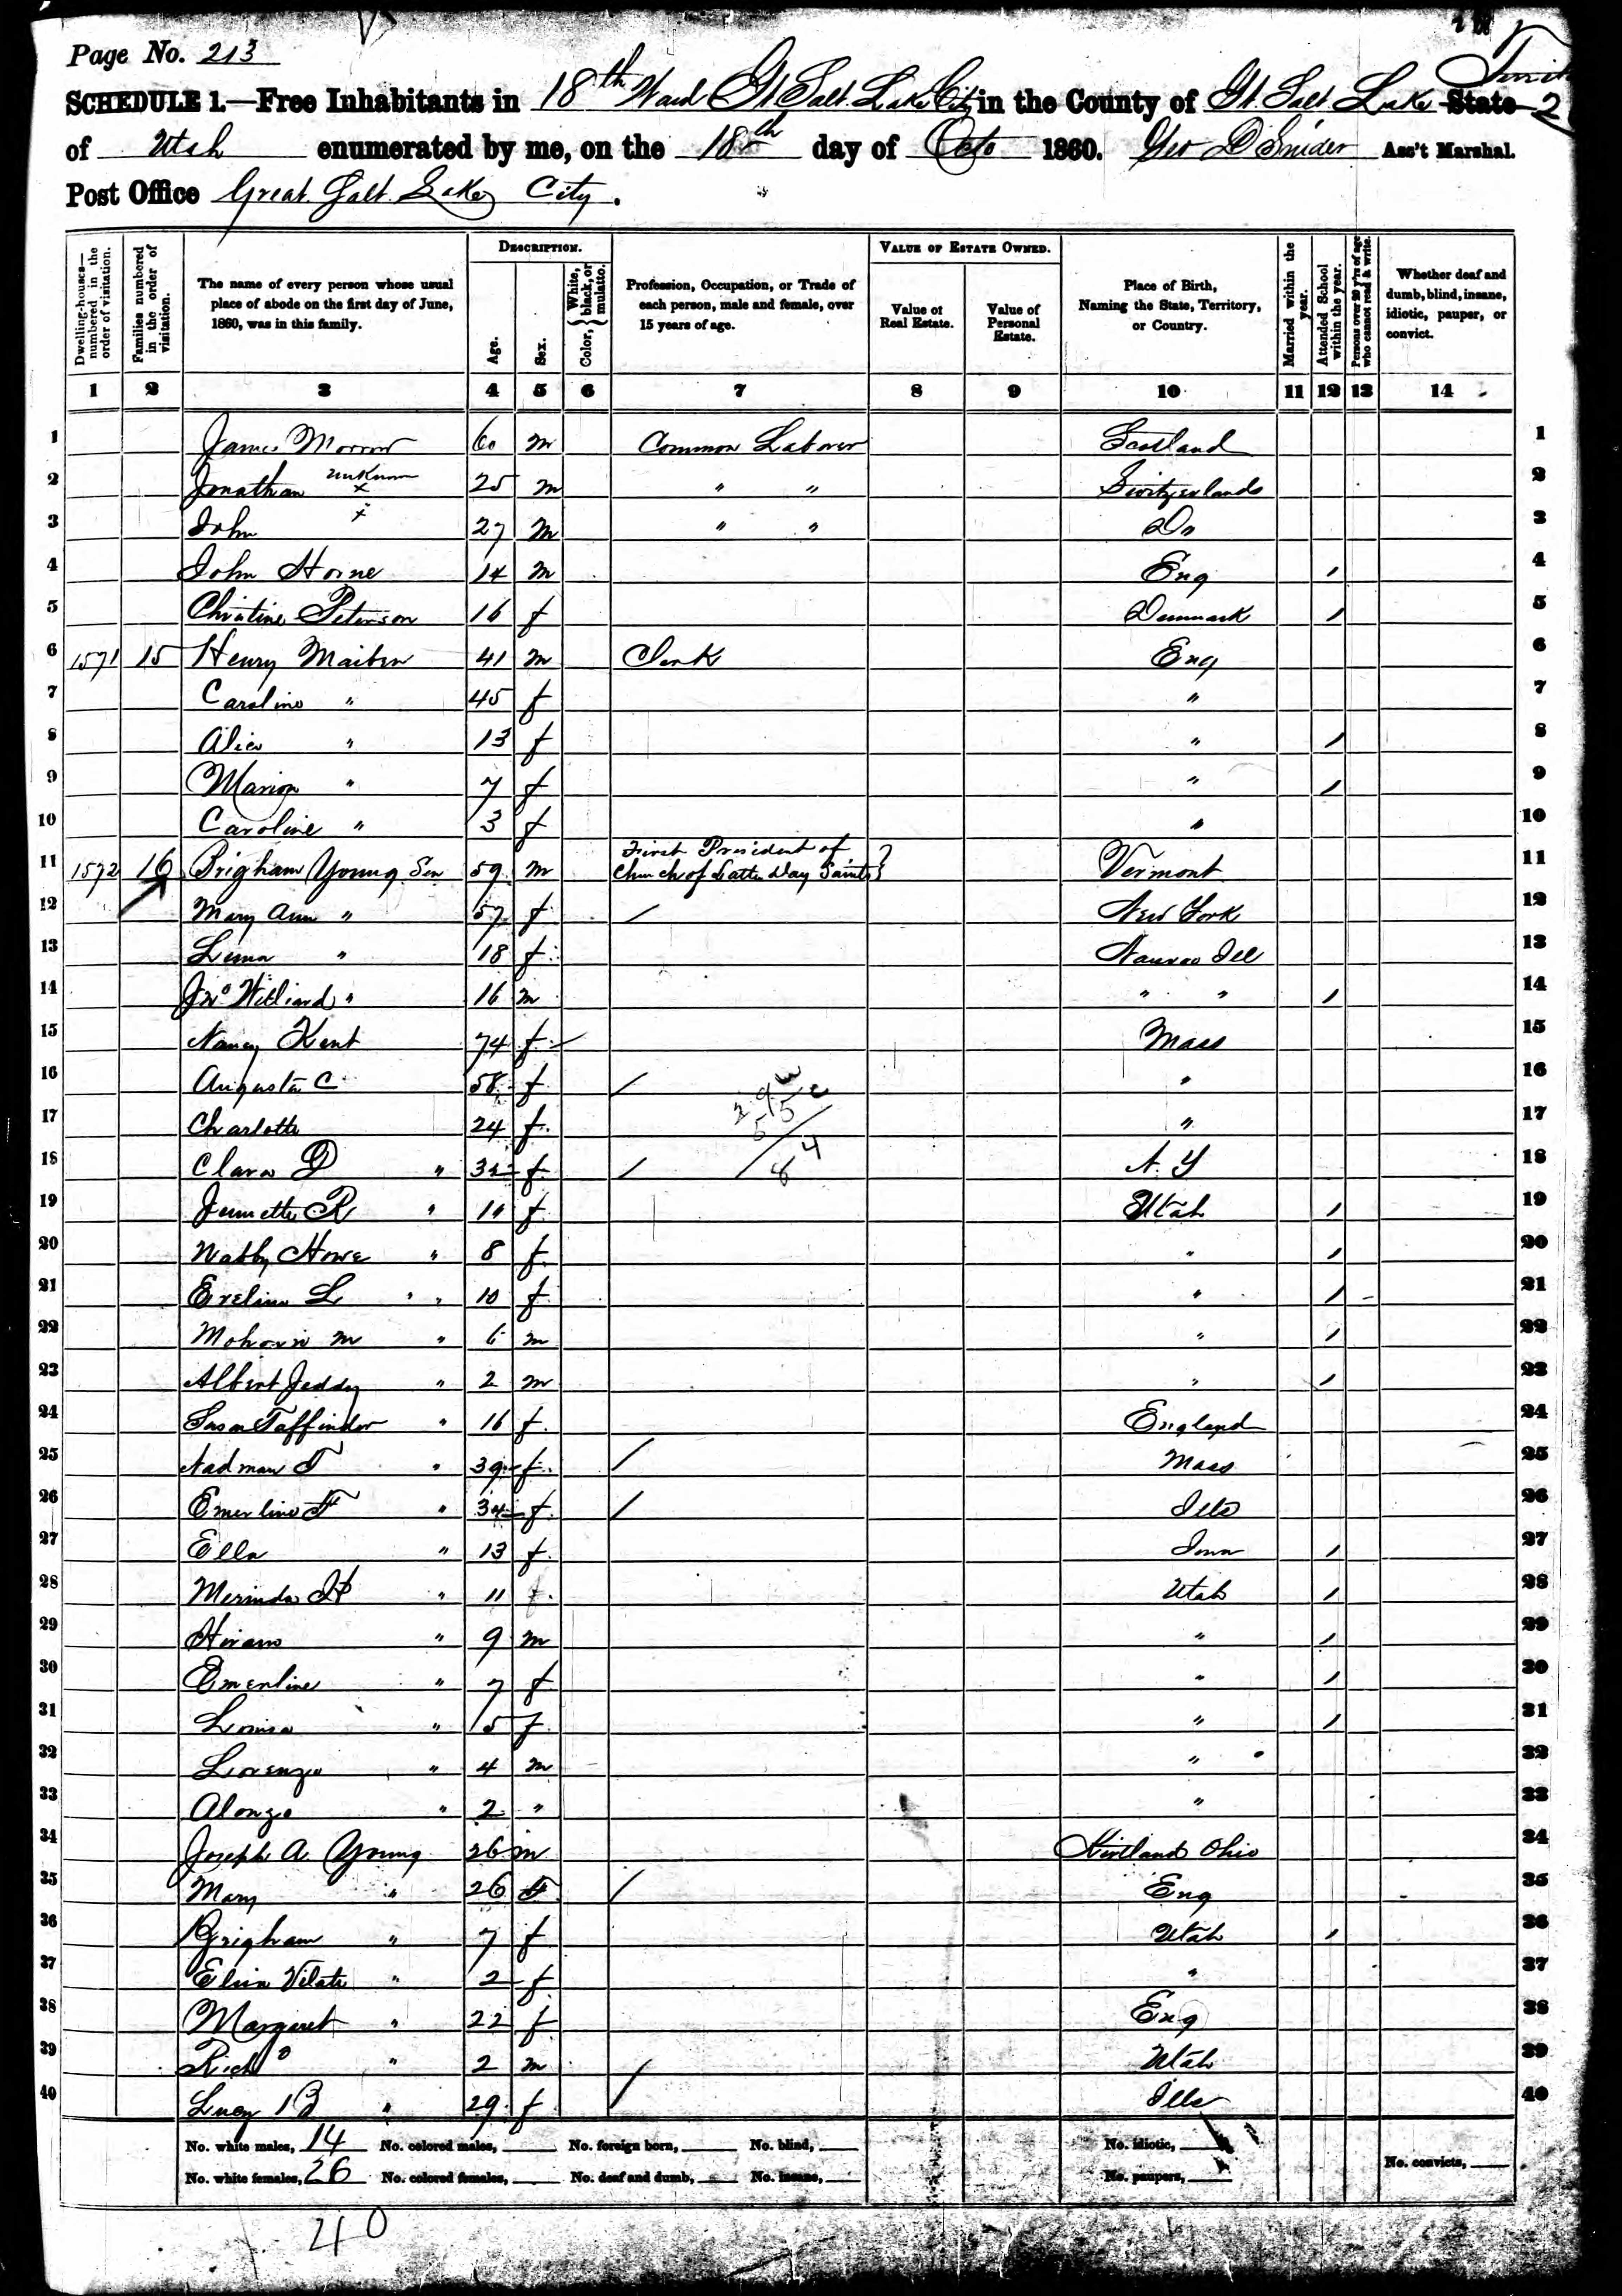 Page No. 213
SCHEDULE 1.—Free Inhabitants in 18th Ward Gt Salt Lake City in the County of Gt. Salt Lake State
of Utah enumerated by me, on the 18th day of Octo 1860. Geo D Snider Ass't Marshal.
Post Office Great Salt Lake City.
Dwelling-houses—numbered in the order of visitation.
Families numbered in the order of visitation.
The name of every person whose usual place of abode on the first day of June, 1860, was in this family.
DESCRIPTION.
Age.
Sex.
Color, { White, black, or mulatto.
Profession, Occupation, or Trade of each person, male and female, over 15 years of age.
VALUE OF ESTATE OWNED.
Value of Real Estate.
Value of Personal Estate.
Place of Birth, Naming the State, Territory, or Country.
Married within the year.
Attended School within the year.
Persons over 20 y'rs of age who cannot read & write.
Whether deaf and dumb, blind, insane, idiotic, pauper, or convict.
1 2 3 4 5 6 7 8 9 10 11 12 13 14
1 James Morrow 60 m Common Laborer Scotland 1
2 Jonathan unknown x 25 m " " Switzerlands 2
3 John x 27 m " " Do 3
4 John Horne 14 m Eng / 4
5 Christine Peterson 16 f Denmark / 5
6 1571 15 Henry Maiben 41 m Clerk Eng 6
7 Caroline " 45 f " 7
8 Alice " 13 f " / 8
9 Marion " 7 f " / 9
10 Caroline " 3 f " 10
11 1572 16 Brigham Young Sen 59 m First President of Church of Latter Day Saints } Vermont 11
12 Mary Ann " 57 f / New York 12
13 Luna " 18 f Nauvoo Ill 13
14 Jno Williard " 16 m " " / 14
15 Nancy Kent 74 f Mass 15
16 Augusta C 58 f / " 16
17 Charlotte 24 f " 17
18 Clara D " 32 f / N. Y 18
19 Jennette R " 11 f Utah / 19
20 Nabby Howe " 8 f " / 20
21 Eveline L " 10 f " / 21
22 M " 6 m " / 22
23 Albert Jeddy " 2 m " / 23
24 Susan Taffinder " 16 f England 24
25 Nadman T " 39 f / Mass 25
26 Emerline F " 34 f / Ills 26
27 Ella " 13 f Iowa / 27
28 Merinda H " 11 f Utah / 28
29 Hiram " 9 m " / 29
30 Emerline " 7 f " / 30
31 Louisa " 5 f " / 31
32 Lorenzo " 4 m " 32
33 Alonzo " 2 " " 33
34 Joseph A. Young 26 m Kirtland Ohio 34
35 Mary " 26 F / Eng 35
36 Brigham " 7 f Utah / 36
37 Eliza Vilate " 2 f " 37
38 Margaret " 22 f Eng 38
39 Richd " 2 m Utah 39
40 Lucy B " 29 f / Ills 40
29 w
55 c
84
No. white males, 14 No. colored males, No. foreign born, No. blind, No. idiotic,
No. white females, 26 No. colored females, No. deaf and dumb, No. insane, No. paupers, No. convicts,
40